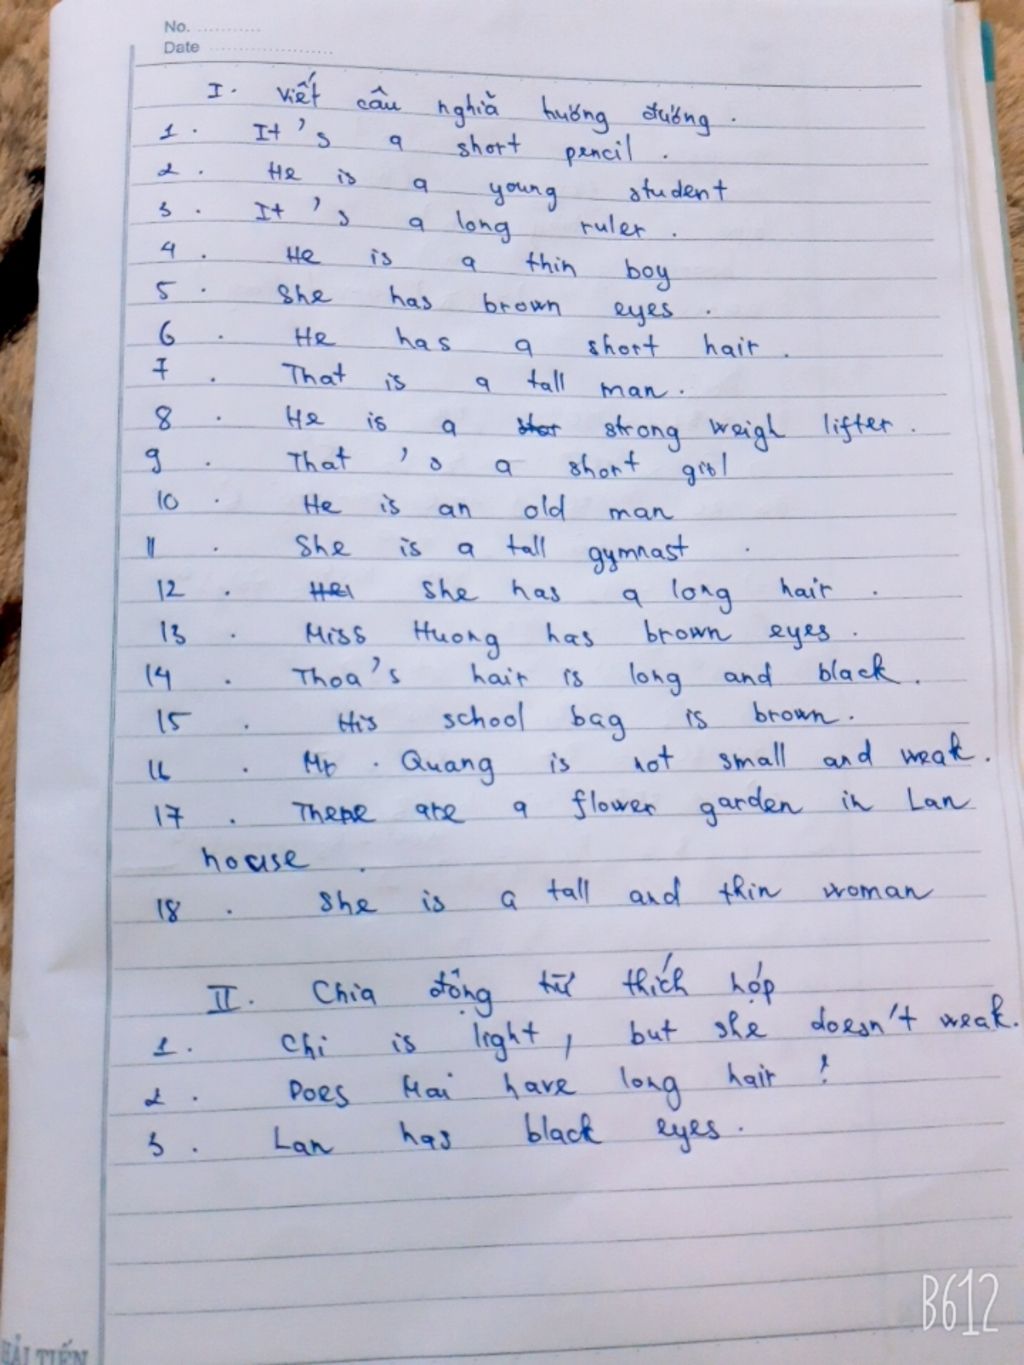 No. ............
Date ......................
I. Viết câu nghiã tương đương.
1. It's a short pencil.
2. He is a young student
3. It's a long ruler.
4. He is a thin boy
5. She has brown eyes.
6. He has a short hair.
7. That is a tall man.
8. He is a strong weigh lifter.
9. That 's a short girl
10. He is an old man
11. She is a tall gymnast.
12. She has a long hair.
13. Miss Huong has brown eyes.
14. Thoa's hair is long and black.
15. His school bag is brown.
16. Mr. Quang is not small and weak.
17. There are a flower garden in Lan
house.
18. She is a tall and thin woman
II. Chia động từ thích hợp
1. Chi is light, but she doesn't weak.
2. Does Mai have long hair?
3. Lan has black eyes.
B612
HẢI TIẾN